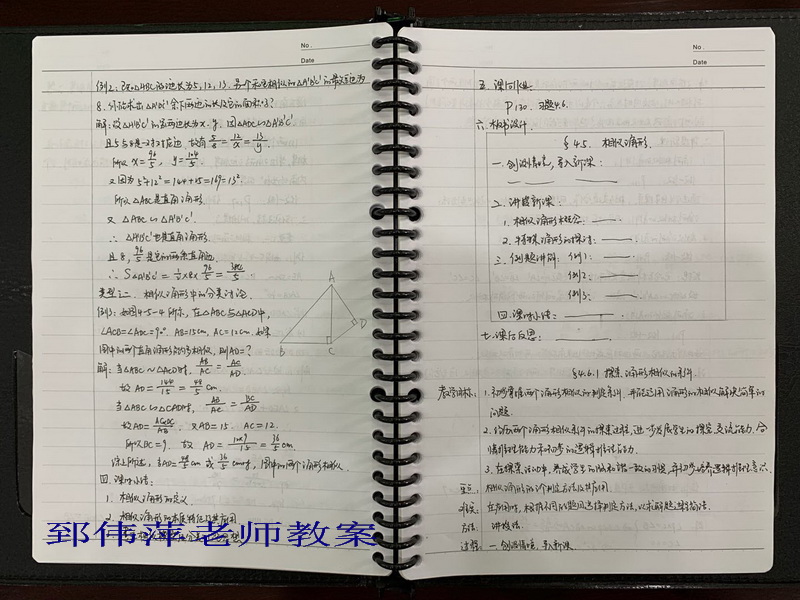 No.
Date
例2：已知△ABC的边长为5, 12, 13. 另一个和它相似的△A'B'C'的最短边为
8. 试求出△A'B'C'余下两边的长及它的面积？
解：设△A'B'C'的另两边长为x. y. 因△ABC∽△A'B'C'
且5与8是一对对应边. 故有 5/8 = 12/x = 13/y.
所以 x = 96/5, y = 104/5.
又因为 5²+12² = 144+25 = 169 = 13²
所以△ABC是直角三角形
又 △ABC∽△A'B'C'.
∴ △A'B'C'也是直角三角形.
且 8, 96/5 是它的两条直角边.
∴ S△A'B'C' = 1/2×8× 96/5 = 384/5.
类型二. 相似三角形中的分类讨论.
例3：如图4-5-4所示, 在△ABC与△ACD中,
∠ACB=∠ADC=90°. AB=15cm, AC=12cm. 如果
图中的两个直角三角形相似, 则AD=?
A
B
C
D
解：当△ABC∽△ACD时, AB/AC = AC/AD.
故 AD = 144/15 = 48/5 cm.
当△ABC∽△CAD时, AB/AC = BC/AD
故AD = AC×BC/AB. 又AB=15. AC=12.
所以BC=9. 故 AD = 12×9/15 = 36/5 cm.
综上所述, 当AD= 48/5 cm 或 36/5 cm时, 图中的两个三角形相似.
四. 课时小结：
1. 相似三角形的定义
2. 相似三角形的本质特征及其应用
郅伟萍老师教案
No.
Date
五. 课后作业
P130. 习题4.6.
六. 板书设计.
§4.5. 相似三角形.
一. 创设情境, 导入新课：
二. 讲授新课：
1. 相似三角形概念：
2. 特殊三角形的探讨：
三. 例题讲解：例1：
例2：
例3：
四. 课时小结：
七. 课后反思：
§4.6.1 探索三角形相似的条件.
教学目标：1. 初步掌握两个三角形相似的判定条件. 并能运用三角形的相似解决简单的
问题.
2. 经历两个三角形相似条件的探索过程, 进一步发展学生的探究、交流能力、合
情推理能力和初步的逻辑推理能力.
重点：相似三角形的判定方法及其应用.
难点：
方法：讲授法.
过程：一. 创设情境. 导入新课